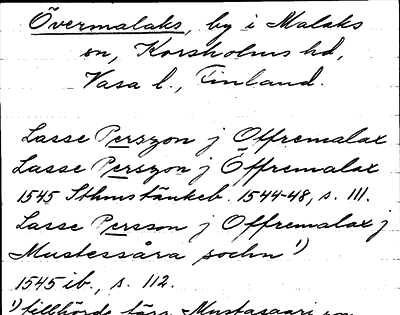 Övermalaks, by i Malaks
sn, Korsholms hd,
Vasa l., Finland.
Lasse Perszon j Offremalax
Lasse Perszon j Öffremalax
1545 Sthmstänkeb. 1544-48, s. 111.
Lasse Persson j Offremalax j
Mustessåra sochn ¹)
1545 ib., s. 112.
¹) tillhörde förr Mustasaari sn